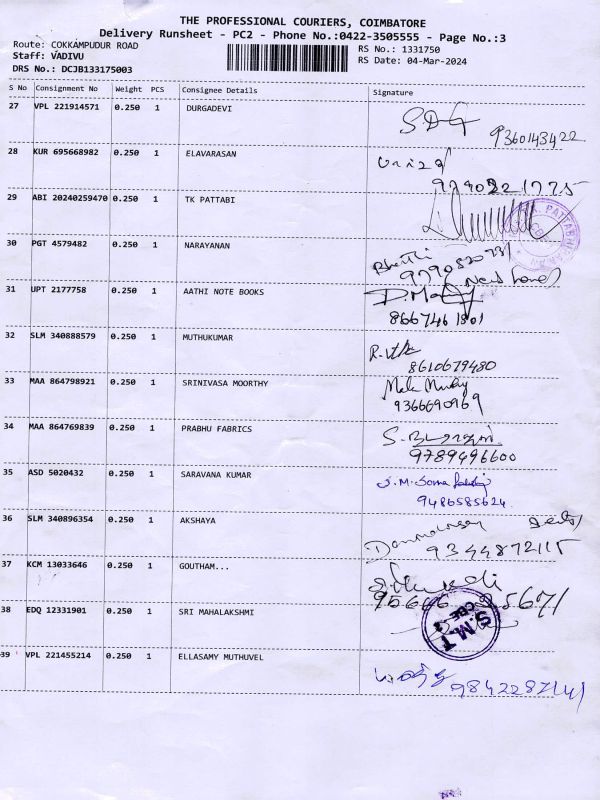 THE PROFESSIONAL COURIERS, COIMBATORE
Delivery Runsheet - PC2 - Phone No.:0422-3505555 - Page No.:3
Route: COKKAMPUDUR ROAD
RS No.: 1331750
Staff: VADIVU
RS Date: 04-Mar-2024
DRS No.: DCJB133175003
S No Consignment No Weight PCS Consignee Details Signature
27 VPL 221914571 0.250 1 DURGADEVI
9360143422
28 KUR 695668982 0.250 1 ELAVARASAN
29 ABI 20240259470 0.250 1 TK PATTABI
30 PGT 4579482 0.250 1 NARAYANAN
31 UPT 2177758 0.250 1 AATHI NOTE BOOKS
8667461801
32 SLM 340888579 0.250 1 MUTHUKUMAR
8610679480
33 MAA 864798921 0.250 1 SRINIVASA MOORTHY
9366690969
34 MAA 864769839 0.250 1 PRABHU FABRICS
9789496600
35 ASD 5020432 0.250 1 SARAVANA KUMAR
9486585624
36 SLM 340896354 0.250 1 AKSHAYA
9344872115
37 KCM 13033646 0.250 1 GOUTHAM...
38 EDQ 12331901 0.250 1 SRI MAHALAKSHMI
S.M.T
39 VPL 221455214 0.250 1 ELLASAMY MUTHUVEL